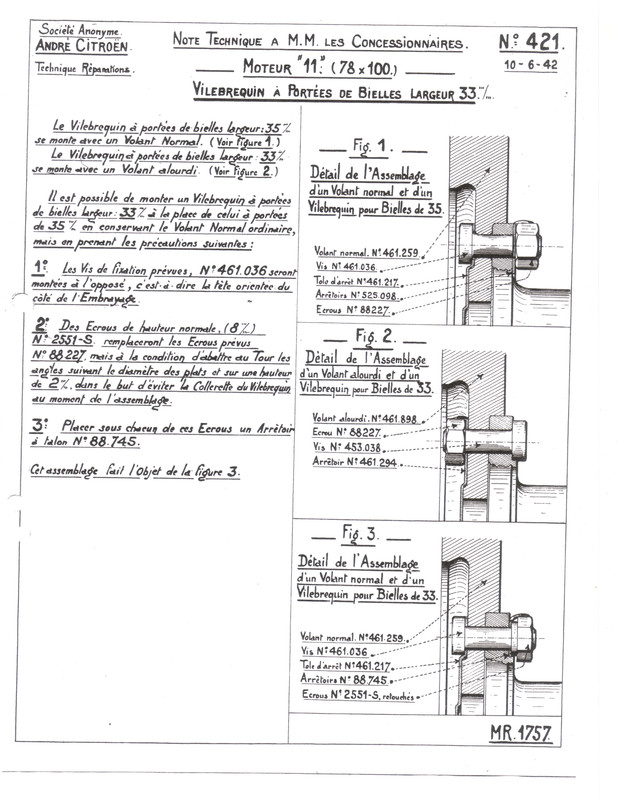 Société Anonyme.
ANDRÉ CITROËN.
Technique Réparations.
NOTE TECHNIQUE A M.M. LES CONCESSIONNAIRES.
MOTEUR "11". (78 x 100.)
VILEBREQUIN À PORTÉES DE BIELLES LARGEUR 33 m/m.
N° 421.
10-6-42
Le Vilebrequin à portées de bielles largeur: 35 %
se monte avec un Volant Normal. (Voir figure 1.)
Le Vilebrequin à portées de bielles largeur: 33 %
se monte avec un Volant alourdi. (Voir figure 2.)
Il est possible de monter un Vilebrequin à portées
de bielles largeur: 33 % à la place de celui à portées
de 35 % en conservant le Volant Normal ordinaire,
mais en prenant les précautions suivantes:
1° Les Vis de fixation prévues, N° 461.036 seront
montées à l'opposé, c'est-à-dire la tête orientée du
côté de l'Embrayage.
2° Des Ecrous de hauteur normale, (8 %)
N° 2551-S. remplaceront les Ecrous prévus
N° 88227, mais à la condition d'abattre au Tour les
angles suivant le diamètre des plats et sur une hauteur
de 2 %, dans le but d'éviter la Collerette du Vilebrequin
au moment de l'assemblage.
3° Placer sous chacun de ces Ecrous un Arrêtoir
à talon N° 88.745.
Cet assemblage fait l'Objet de la figure 3.
Fig. 1.
Détail de l'Assemblage
d'un Volant normal et d'un
Vilebrequin pour Bielles de 35.
Volant normal. N° 461.259.
Vis N° 461.036.
Tole d'arrêt N° 461.217.
Arrêtoirs N° 525.098.
Ecrous N° 88227.
Fig. 2.
Détail de l'Assemblage
d'un Volant alourdi et d'un
Vilebrequin pour Bielles de 33.
Volant alourdi. N° 461.898.
Ecrou N° 88227.
Vis N° 453.038.
Arrêtoir N° 461.294.
Fig. 3.
Détail de l'Assemblage
d'un Volant normal et d'un
Vilebrequin pour Bielles de 33.
Volant normal. N° 461.259.
Vis N° 461.036
Tole d'arrêt N° 461.217.
Arrêtoirs N° 88.745.
Ecrous N° 2551-S, retouchés.
MR.1757.